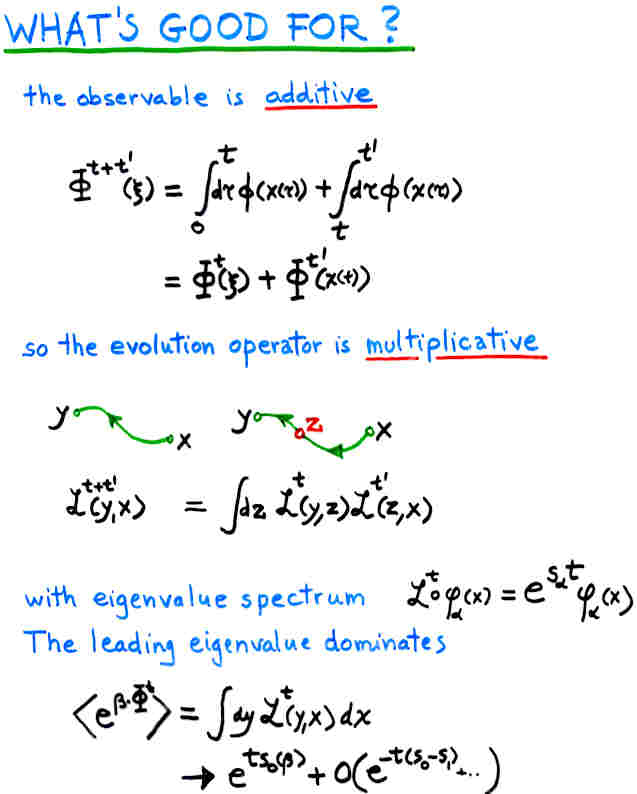 WHAT'S GOOD FOR?
the observable is additive
Φ^{t+t'}(ξ) = ∫_0^t dτ ϕ(x(τ)) + ∫_t^{t'} dτ ϕ(x(τ))
= Φ^t(ξ) + Φ^{t'}(x(t))
so the evolution operator is multiplicative
y x y z x
ℒ^{t+t'}(y,x) = ∫dz ℒ^t(y,z) ℒ^{t'}(z,x)
with eigenvalue spectrum ℒ^t∘φ_α(x) = e^{s_α t} φ_α(x)
The leading eigenvalue dominates
⟨e^{β·Φ^t}⟩ = ∫dy ℒ^t(y,x) dx
→ e^{t s_0(β)} + O(e^{-t(s_0-s_1)}+...)